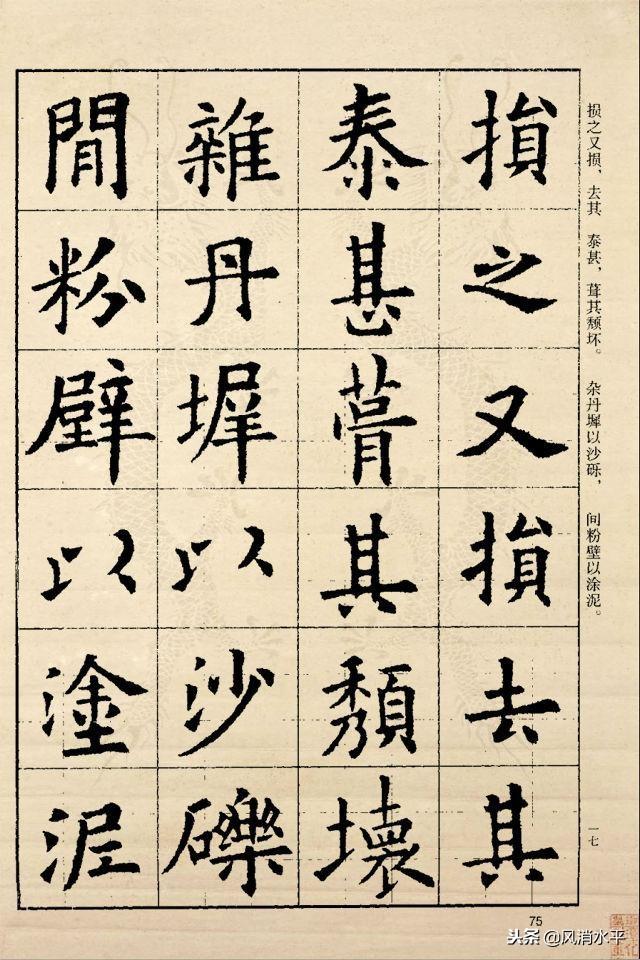 损之又损、去其　泰甚，葺其颓坏。　杂丹墀以沙砾，　间粉壁以涂泥。
損之又損去其
泰甚葺其頹壞
雜丹墀以沙礫
閒粉壁以塗泥
一七
75
头条 @风消水平